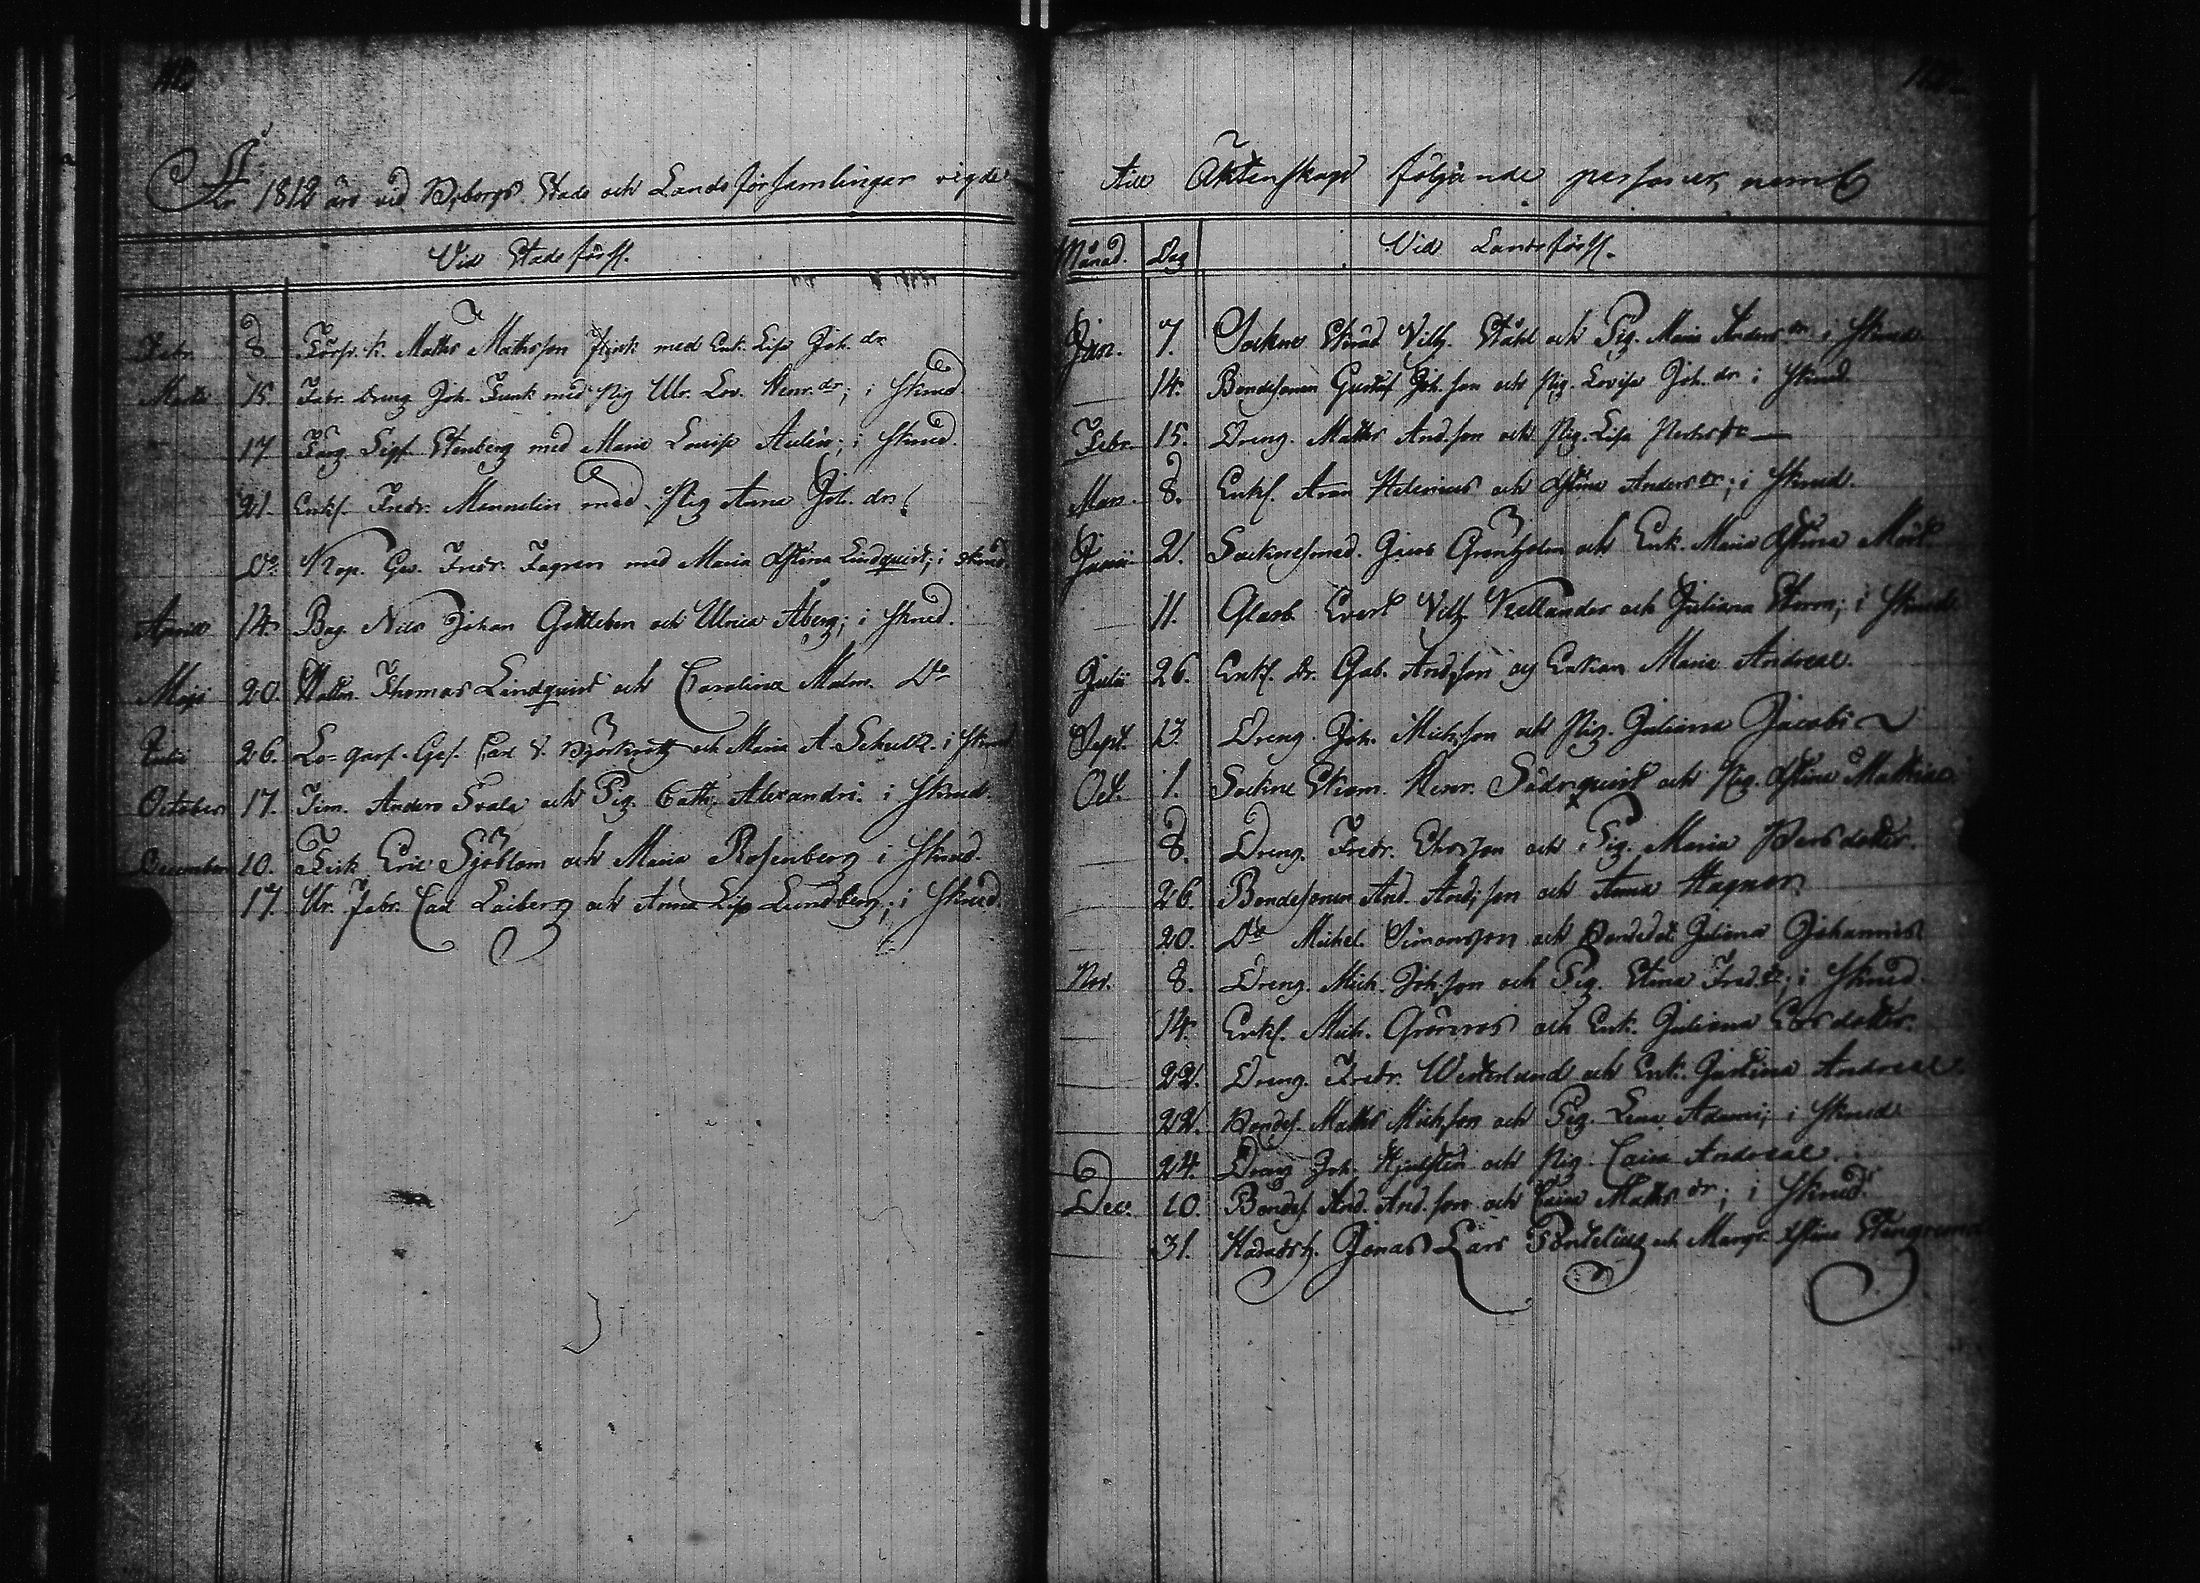 År 1812 äro vid Wiborgs Stads och Landsförsamlingar vigde
Vid Stadsförs.
Febr. 8 Maths Mathsson Fisk med Enk. Lisa Joh. dr
Martii 15. Fabr. dreng Joh. Funk med Pig Ulr. Lov. Henr. dr; i Sknad
17 Farg. Sigf. Stenberg med Maria Lovisa Aulin; i Sknad.
21. Enkl. Fredr. Mannelin med Pig Anna Joh. dr
Do Kop. Ges. Fredr. Fagren med Maria Stina Lindquist; i Sknad
Aprill 14. Bag. Nils Johan Gottleben och Ulrica Åberg; i Sknad.
Maji 20. Thomas Lindquist och Carolina Malm. Do
Julii 26. Garf. Ges. Carl och Maria A. Schultz. i Sknad
October 17. Tim. Anders Svala och Pig. Cath. Alexandri. i Sknad.
December 10. Fisk. Eric Sjöblom och Maria Rosenberg i Sknad.
17. Ur. Fabr. Carl Laiberg och Anna Lisa Lundberg; i Sknad
till Äktenskap följande personer, neml.
Månad. Dag Vid Landsförs.
Jan. 7. Sockne Skräd. Vilh. Ståhl och Pig. Maria Anders dr i Sknad
14. Bondesonen Gustaf Joh. son och Pig. Lovisa Joh. dr i Sknad
Febr. 15. Dreng. Maths And. son och Pig. Lisa
Mars. 8. Enkl. Aron Helenius och Stina Anders dr; i Sknad.
Junii 21. Socknesmed. Jacob Grönholm och Enk. Maria Stina Mört
11. Glasb. Evert Vilh. Kellander och Juliana Storm; i Sknad
Julii 26. Enkl. Dr. Gab. Andsson och Enkan Maria Andreae.
Sept. 13. Dreng. Joh. Michsson och Pig. Juliana Jacobi
Oct. 1. Sockne Skom. Henr. Söderquist och Pig. Stina Mathiae
8. Dreng. Fredr. Ehrsson och Pig. Maria Persdotter.
26. Bondesonen And. Andsson och Anna Hagner
20. Do Michel Simonsson och Bondedot. Juliana Johannis
Nov. 8. Dreng. Mich. Johsson och Pig. Stina Fred. dr; i Sknad.
14. Enkl. Mich. Grönroos och Enk. Juliana Ersdotter.
22. Dreng. Fredr. Westerlund och Enk. Justina Andreae.
22. Bondes. Maths Michsson och Pig. Lena Adami; i Sknad
24. Dreng Joh. och Pig. Caisa Andreae.
Dec. 10. Bondes. And. And. son och Caisa Maths dr; i Sknad.
31. Jonas Lars Pontelius och Margr. Stina Stengrund